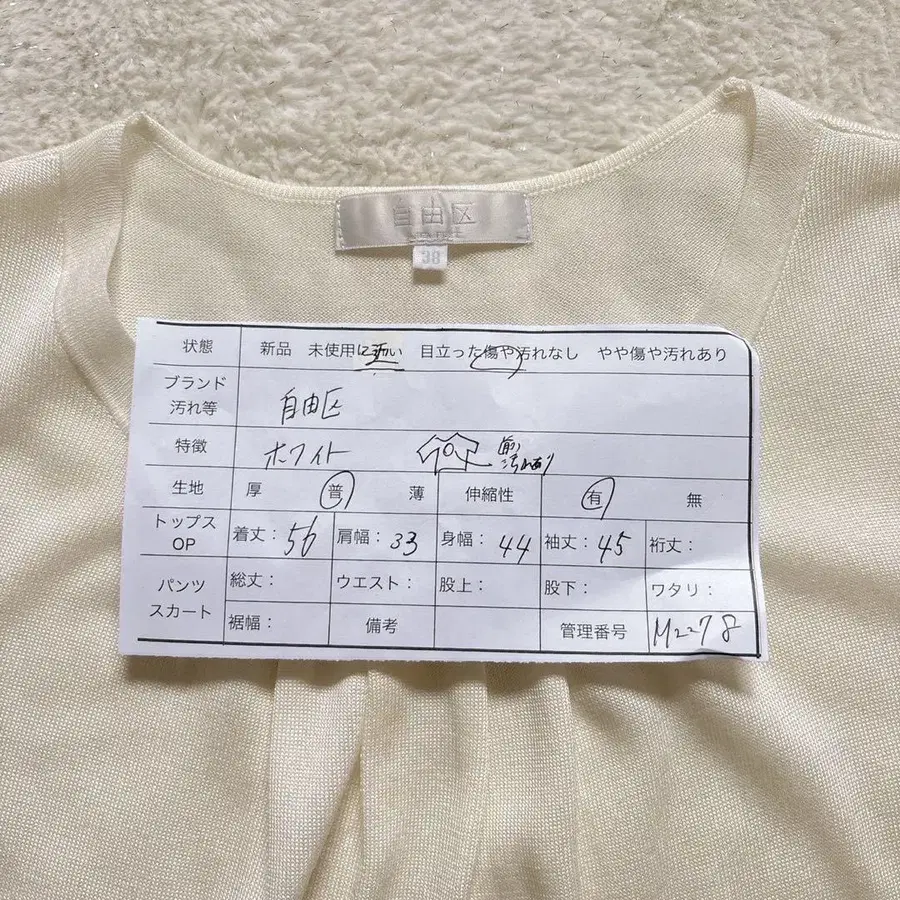 自由区
38
状態 新品 未使用に近い 目立った傷や汚れなし やや傷や汚れあり
ブランド 自由区
汚れ等
特徴 ホワイト 前 汚れあり
生地 厚 普 薄 伸縮性 有 無
トップス OP 着丈:56 肩幅:33 身幅:44 袖丈:45 裄丈:
パンツ スカート 総丈: ウエスト: 股上: 股下: ワタリ:
裾幅: 備考 管理番号 M2278